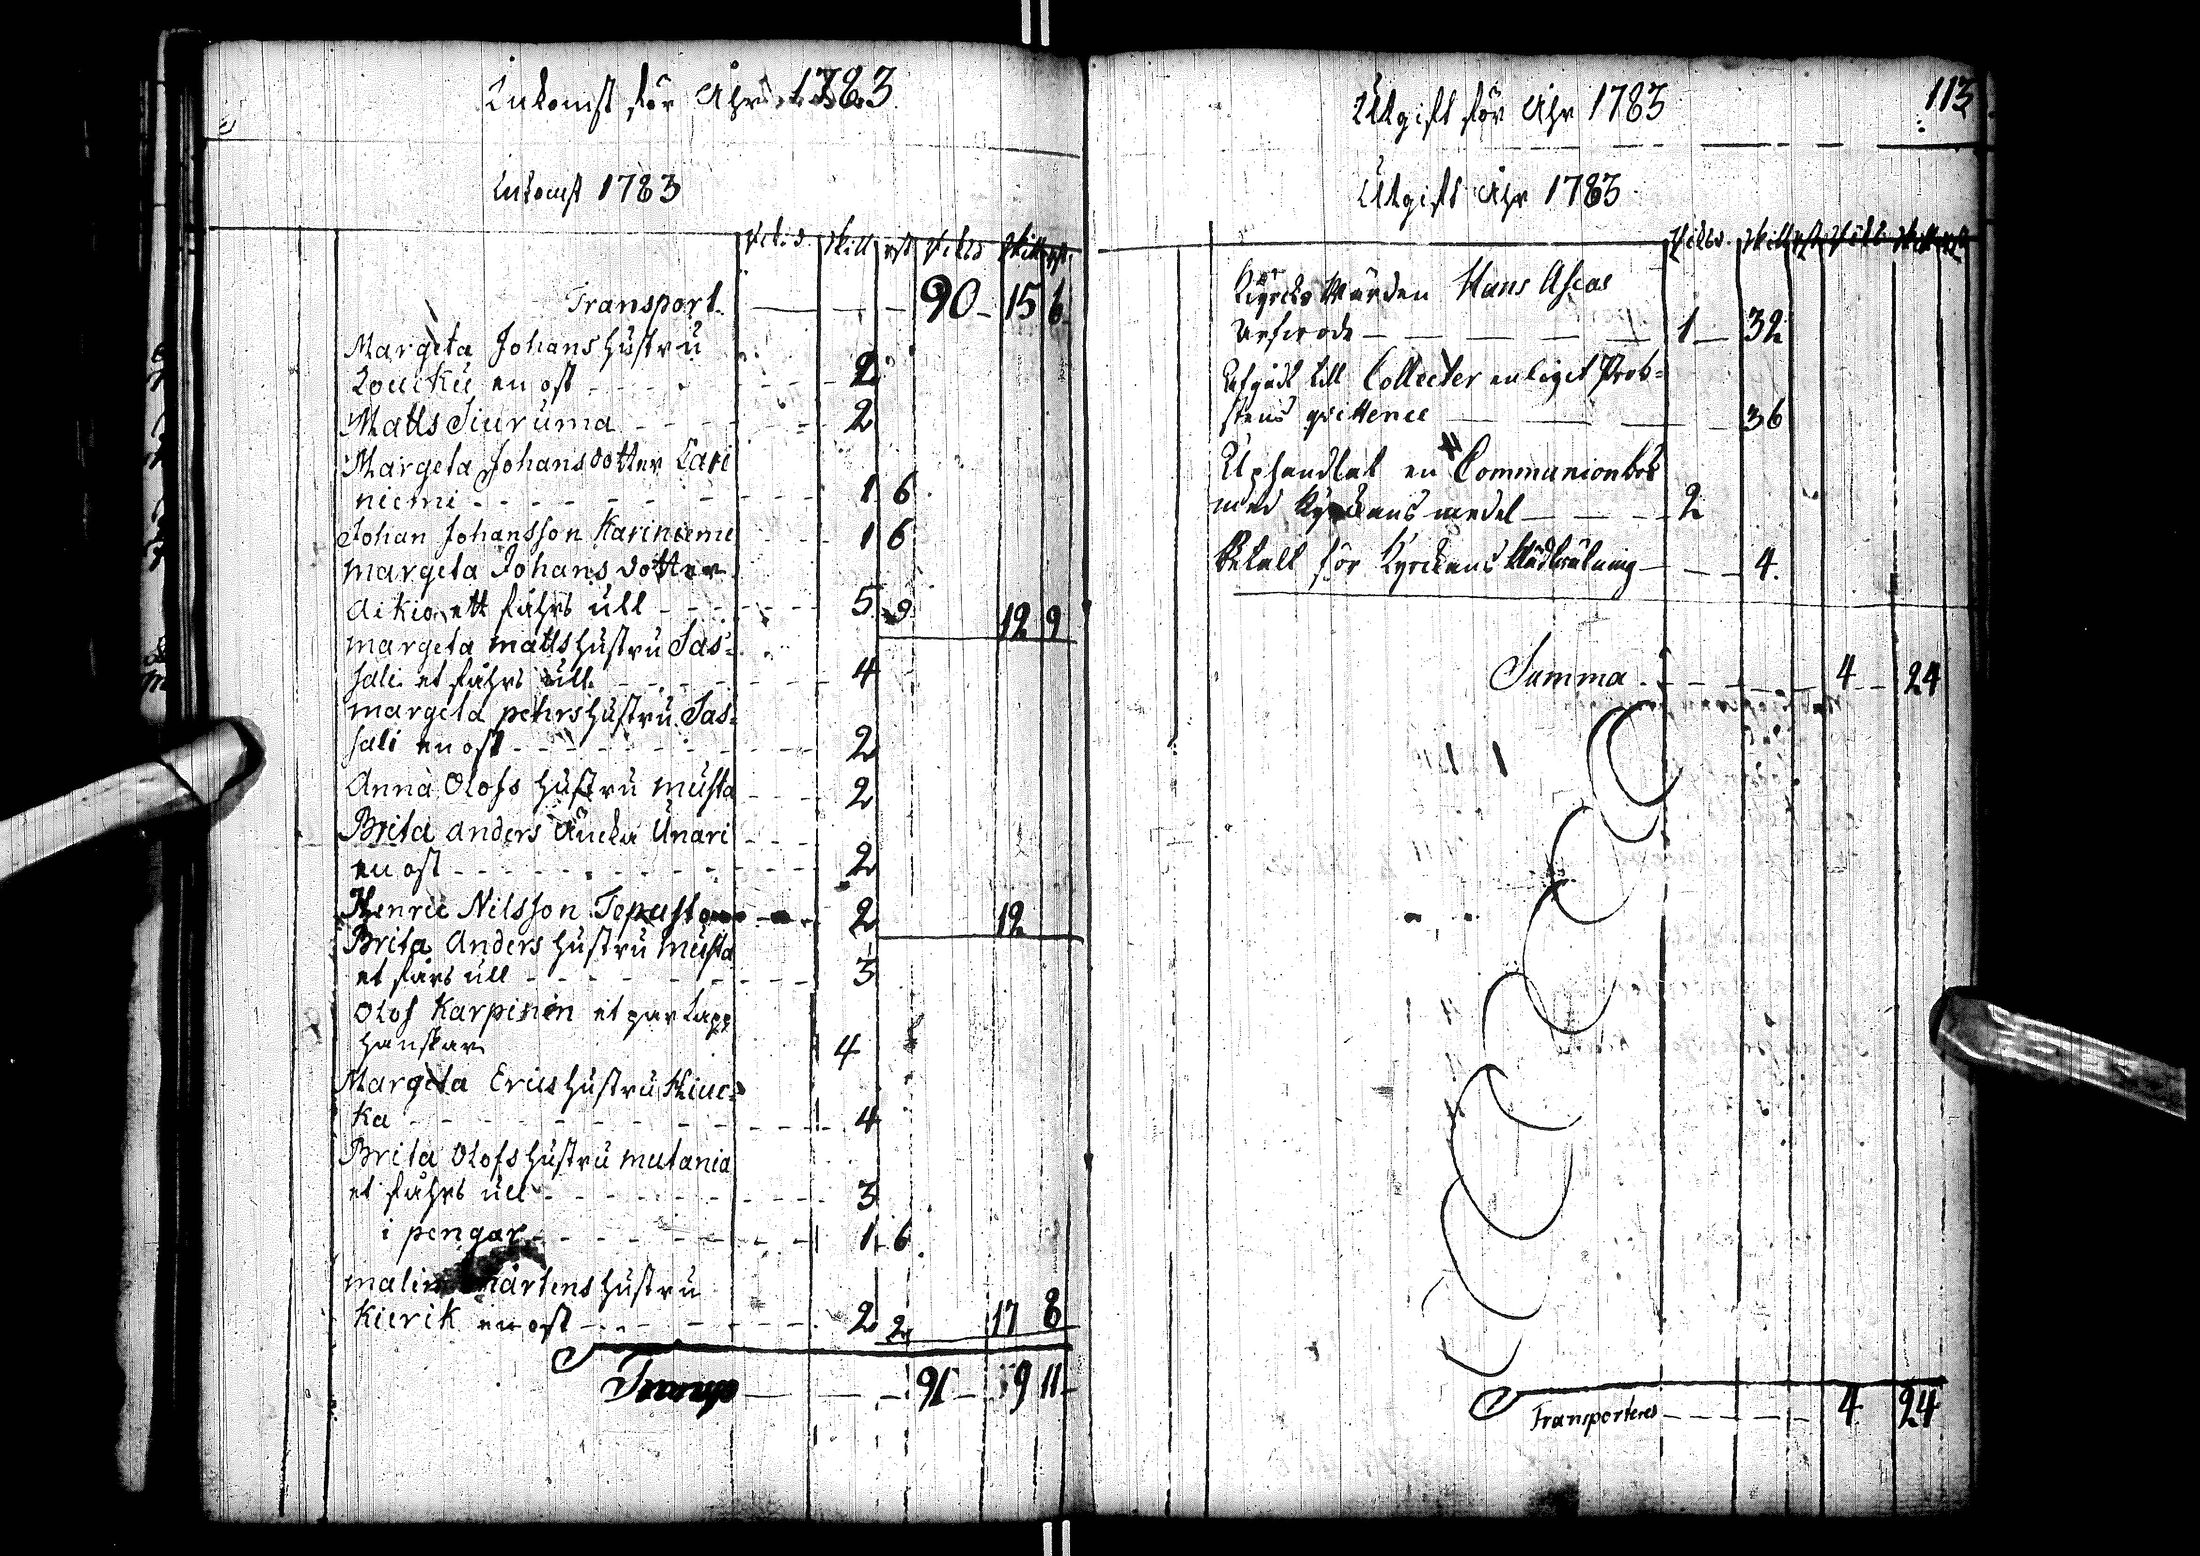 Inkomst för Åhr 1783
Inkomst 1783
Rikd. skill rst Riksd skill rst.
Transport. 90 15 6
Margeta Johans hustru
Loucku en ost 2
Matts Siuruma 2
Margeta Johansdotter Kari
niemi 1 6
Johan Johansson Kariniemi 1 6
Margeta Johans dotter
Aikio ett fåhrs ull 5 9 12 9
margeta matts hustru Sas-
sali et fåhrs ull 4
margeta pehrs hustru Sas-
sali en ost 2
Anna Olofs hustru musta 2
Brita anders Äncka Unari
en ost 2
Henric Nilsson Tepasto 2 12
Brita Anders hustru musta
et fårs ull 3
Olof Karpinen et par Lapp
hanskar 4
Margeta Erics hustru Kiuc-
ka 4
Brita Olofs hustru mutania
et fåhrs ull 3
i pengar 1 6
malin mårtens hustru
Kierik en ost 2 2 17 8
Transp 91 9 11
Utgift för Åhr 1783 113
Utgift Åhr 1783
Riksd. skill rst Riksd. skill rst
Kyrcko Wärden Hans Ascas
Arfwode 1 32
Utgådt till Collecter enligit Prob-
stens qvittence 36
Uphandlat en Communionbok
med Kyrckans medel 2
Betalt för Kyrckans 4
Summa 4 24
Transporteres 4 24